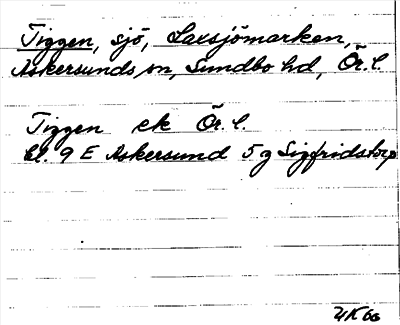 Tiggen, sjö, Laxsjömarken,
Askersunds sn, Sundbo hd, Ör. l.
Tiggen ek Ör. l.
bl. 9 E Askersund 5 g Sigfridstorp
UK 66